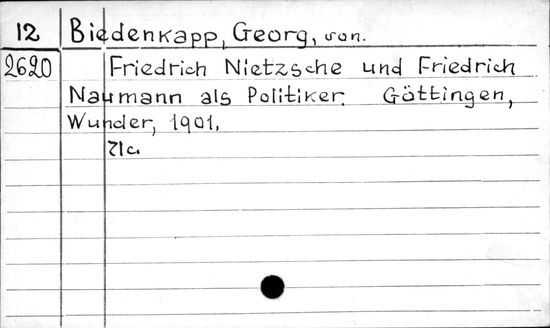 12 Biedenkapp, Georg,
2620 Friedrich Nietzsche und Friedrich
Naumann als Politiker. Göttingen,
Wunder, 1901.
71c.